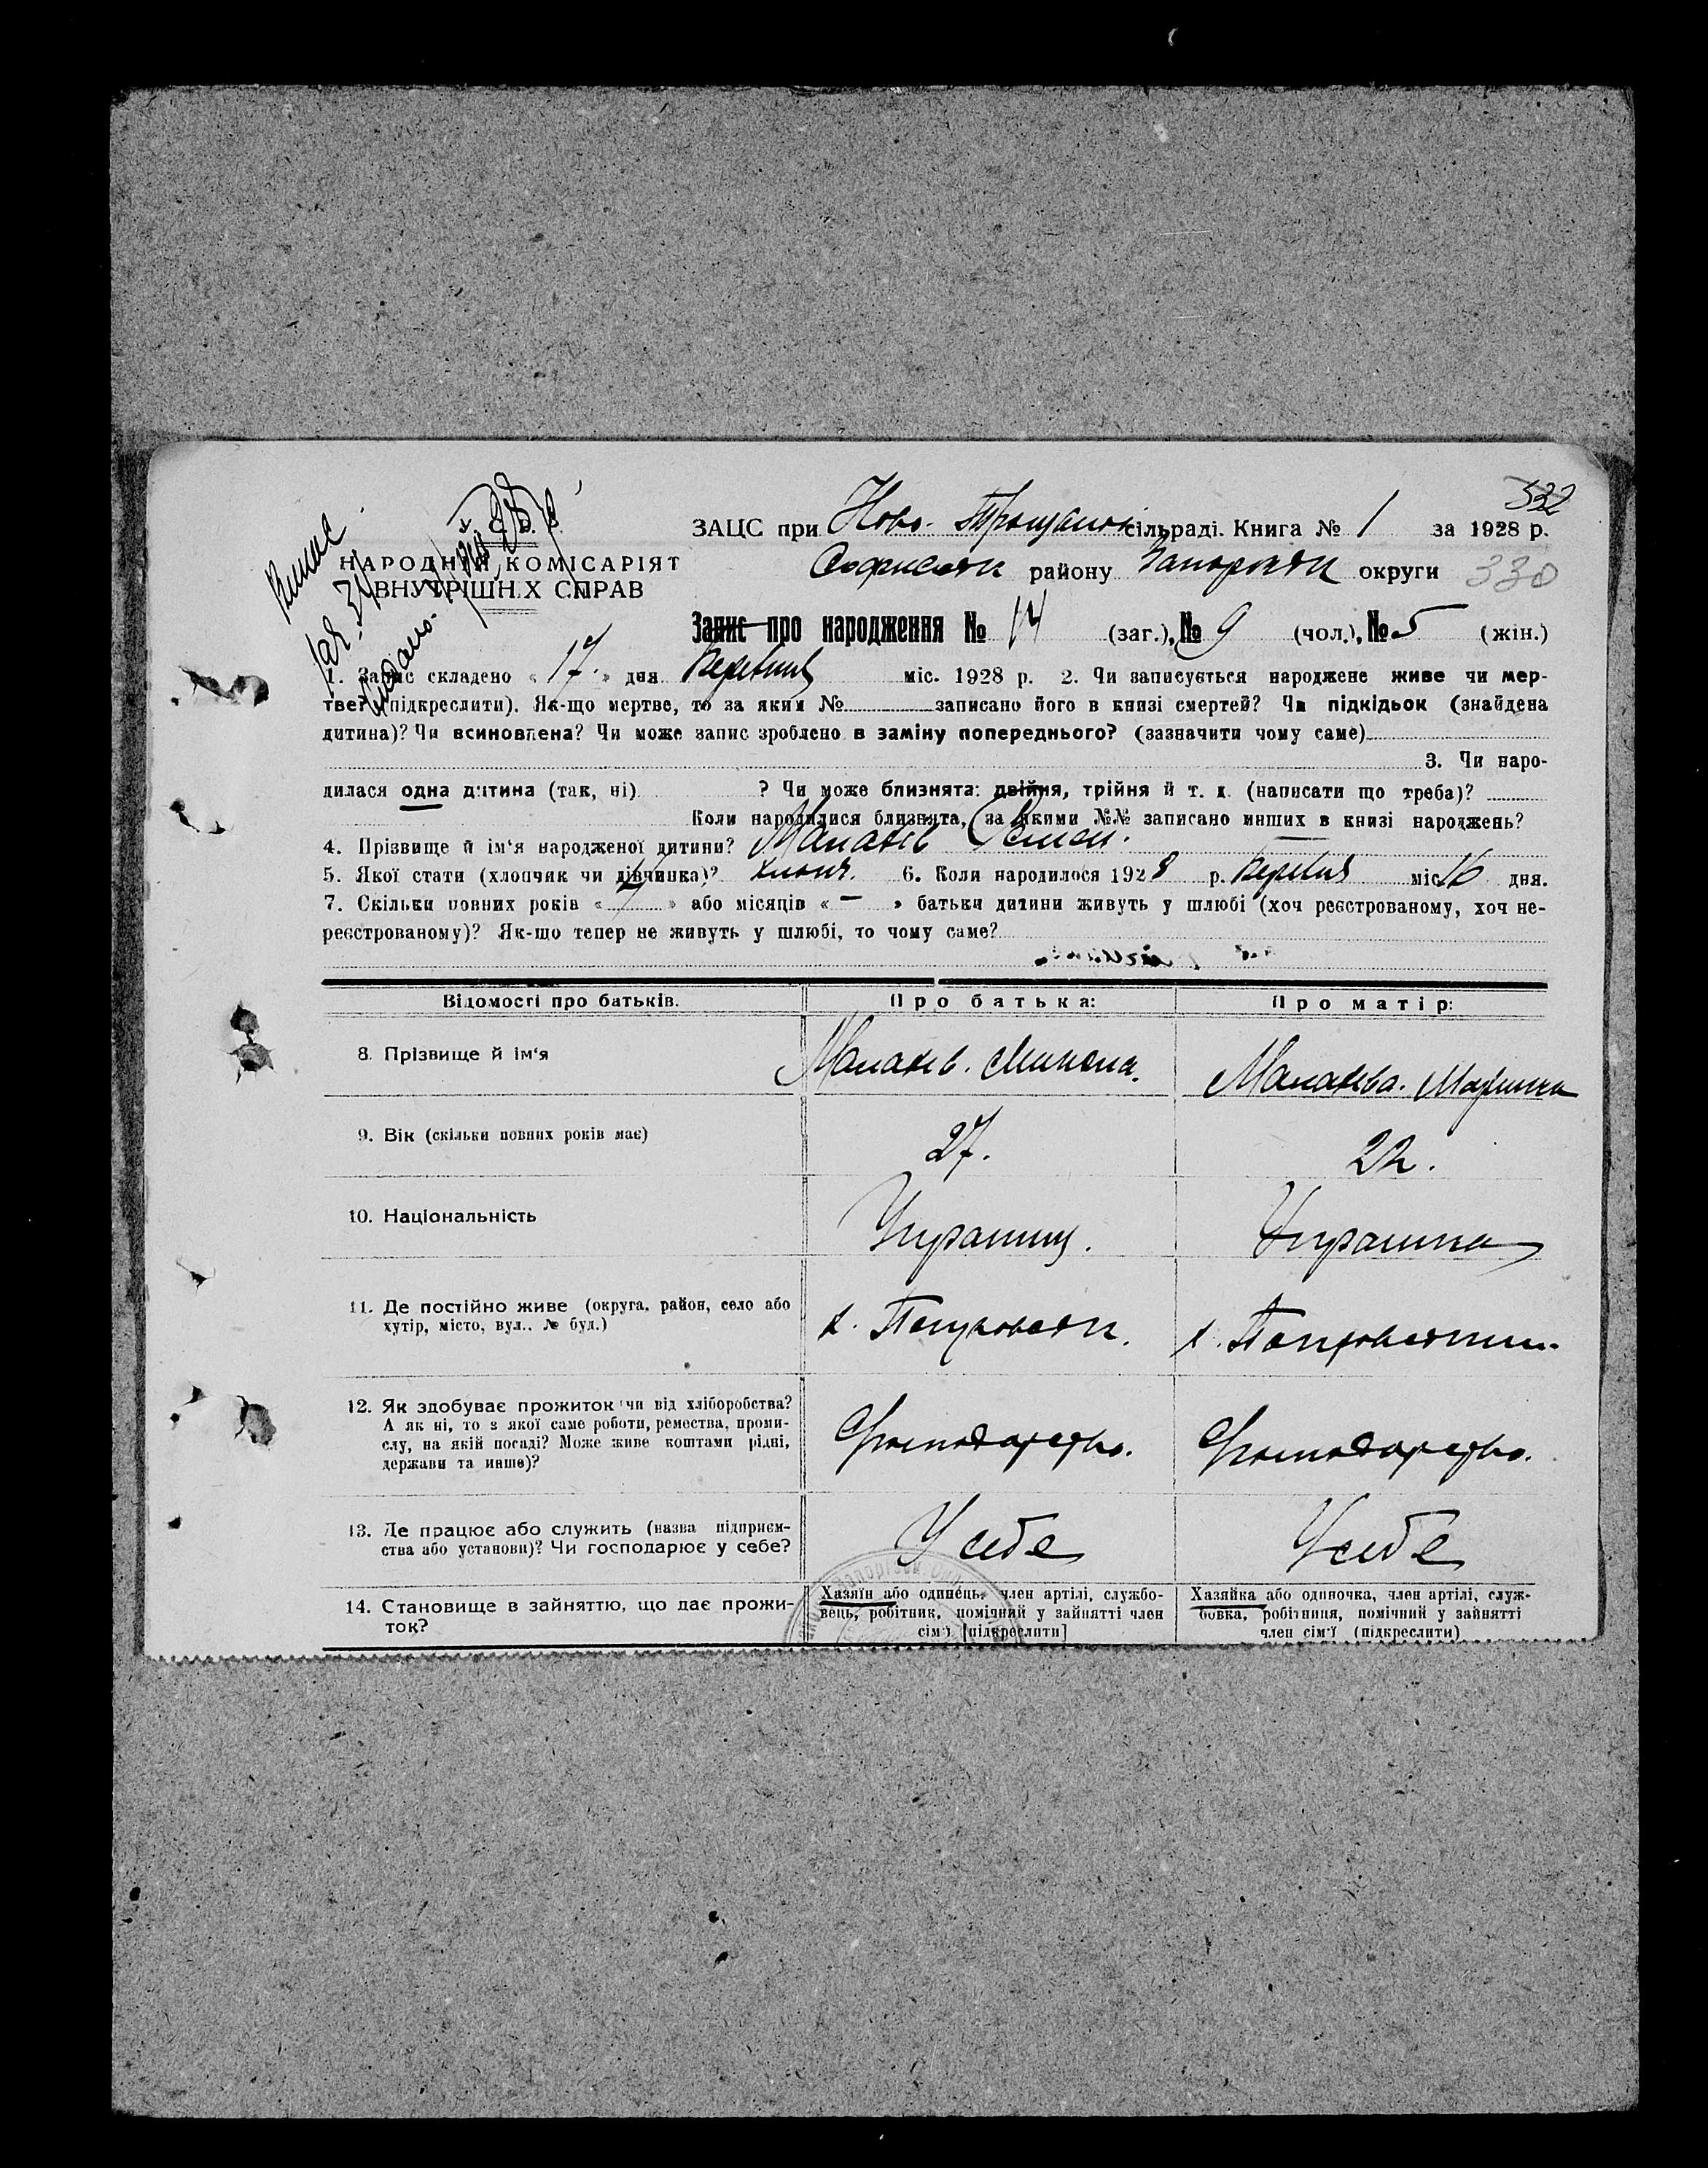 532
ЗАЦС при Ново- сільраді. Книга № 1 за 1928 р.
НАРОДНИЙ КОМІСАРІЯТ
ВНУТРІШНІХ СПРАВ
району округи 330
Запис про народження № 14 (заг.), № 9 (чол.), № 5 (жін.)
1. Запис складено « 17 » дня міс. 1928 р. 2. Чи записується народжене живе чи мер-
тве? (підкреслити). Як-що мертве, то за яким № записано його в книзі смертей? Чи підкідьок (знайдена
дитина)? Чи всиновлена? Чи може запис зроблено в заміну попереднього? (зазначити чому саме)
3. Чи наро-
дилася одна дитина (так, ні) ? Чи може близнята: двійня, трійня й т. д. (написати що треба)?
Коли народилися близнята, за якими №№ записано инших в книзі народжень?
4. Прізвище й ім‘я народженої дитини? Малахів Семен.
5. Якої статі (хлопчик чи дівчинка)? хлопч. 6. Коли народилося 1928 р. міс. 16 дня.
7. Скільки повних років « » або місяців « — » батьки дитини живуть у шлюбі (хоч реєстрованому, хоч не-
реєстрованому)? Як-що тепер не живуть у шлюбі, то чому саме?
Відомості про батьків. Про батька: Про матір:
8. Прізвище й ім‘я Малахів. Микола. Малахова. Марина
9. Вік (скільки повних років має) 27. 22.
10. Національність Українц. Українка
11. Де постійно живе (округа, район, село або
хутір, місто, вул., № буд.)
х.
х.
12. Як здобуває прожиток чи від хліборобства?
А як ні, то з якої саме роботи, ремества, проми-
слу, на якій посаді? Може живе коштами рідні,
держави та инше)?
Господарство. Господарство.
13. Де працює або служить (назва підприєм-
ства або установи)? Чи господарює у себе?
У себе У себе
14. Становище в зайняттю, що дає прожи-
ток?
Хазяїн або одинець, член артілі, службо-
вець, робітник, помічний у зайнятті член
сім‘ї [підкреслити]
Хазяйка або одиночка, член артілі, служ-
бовка, робітниця, помічний у зайнятті
член сім‘ї (підкреслити)